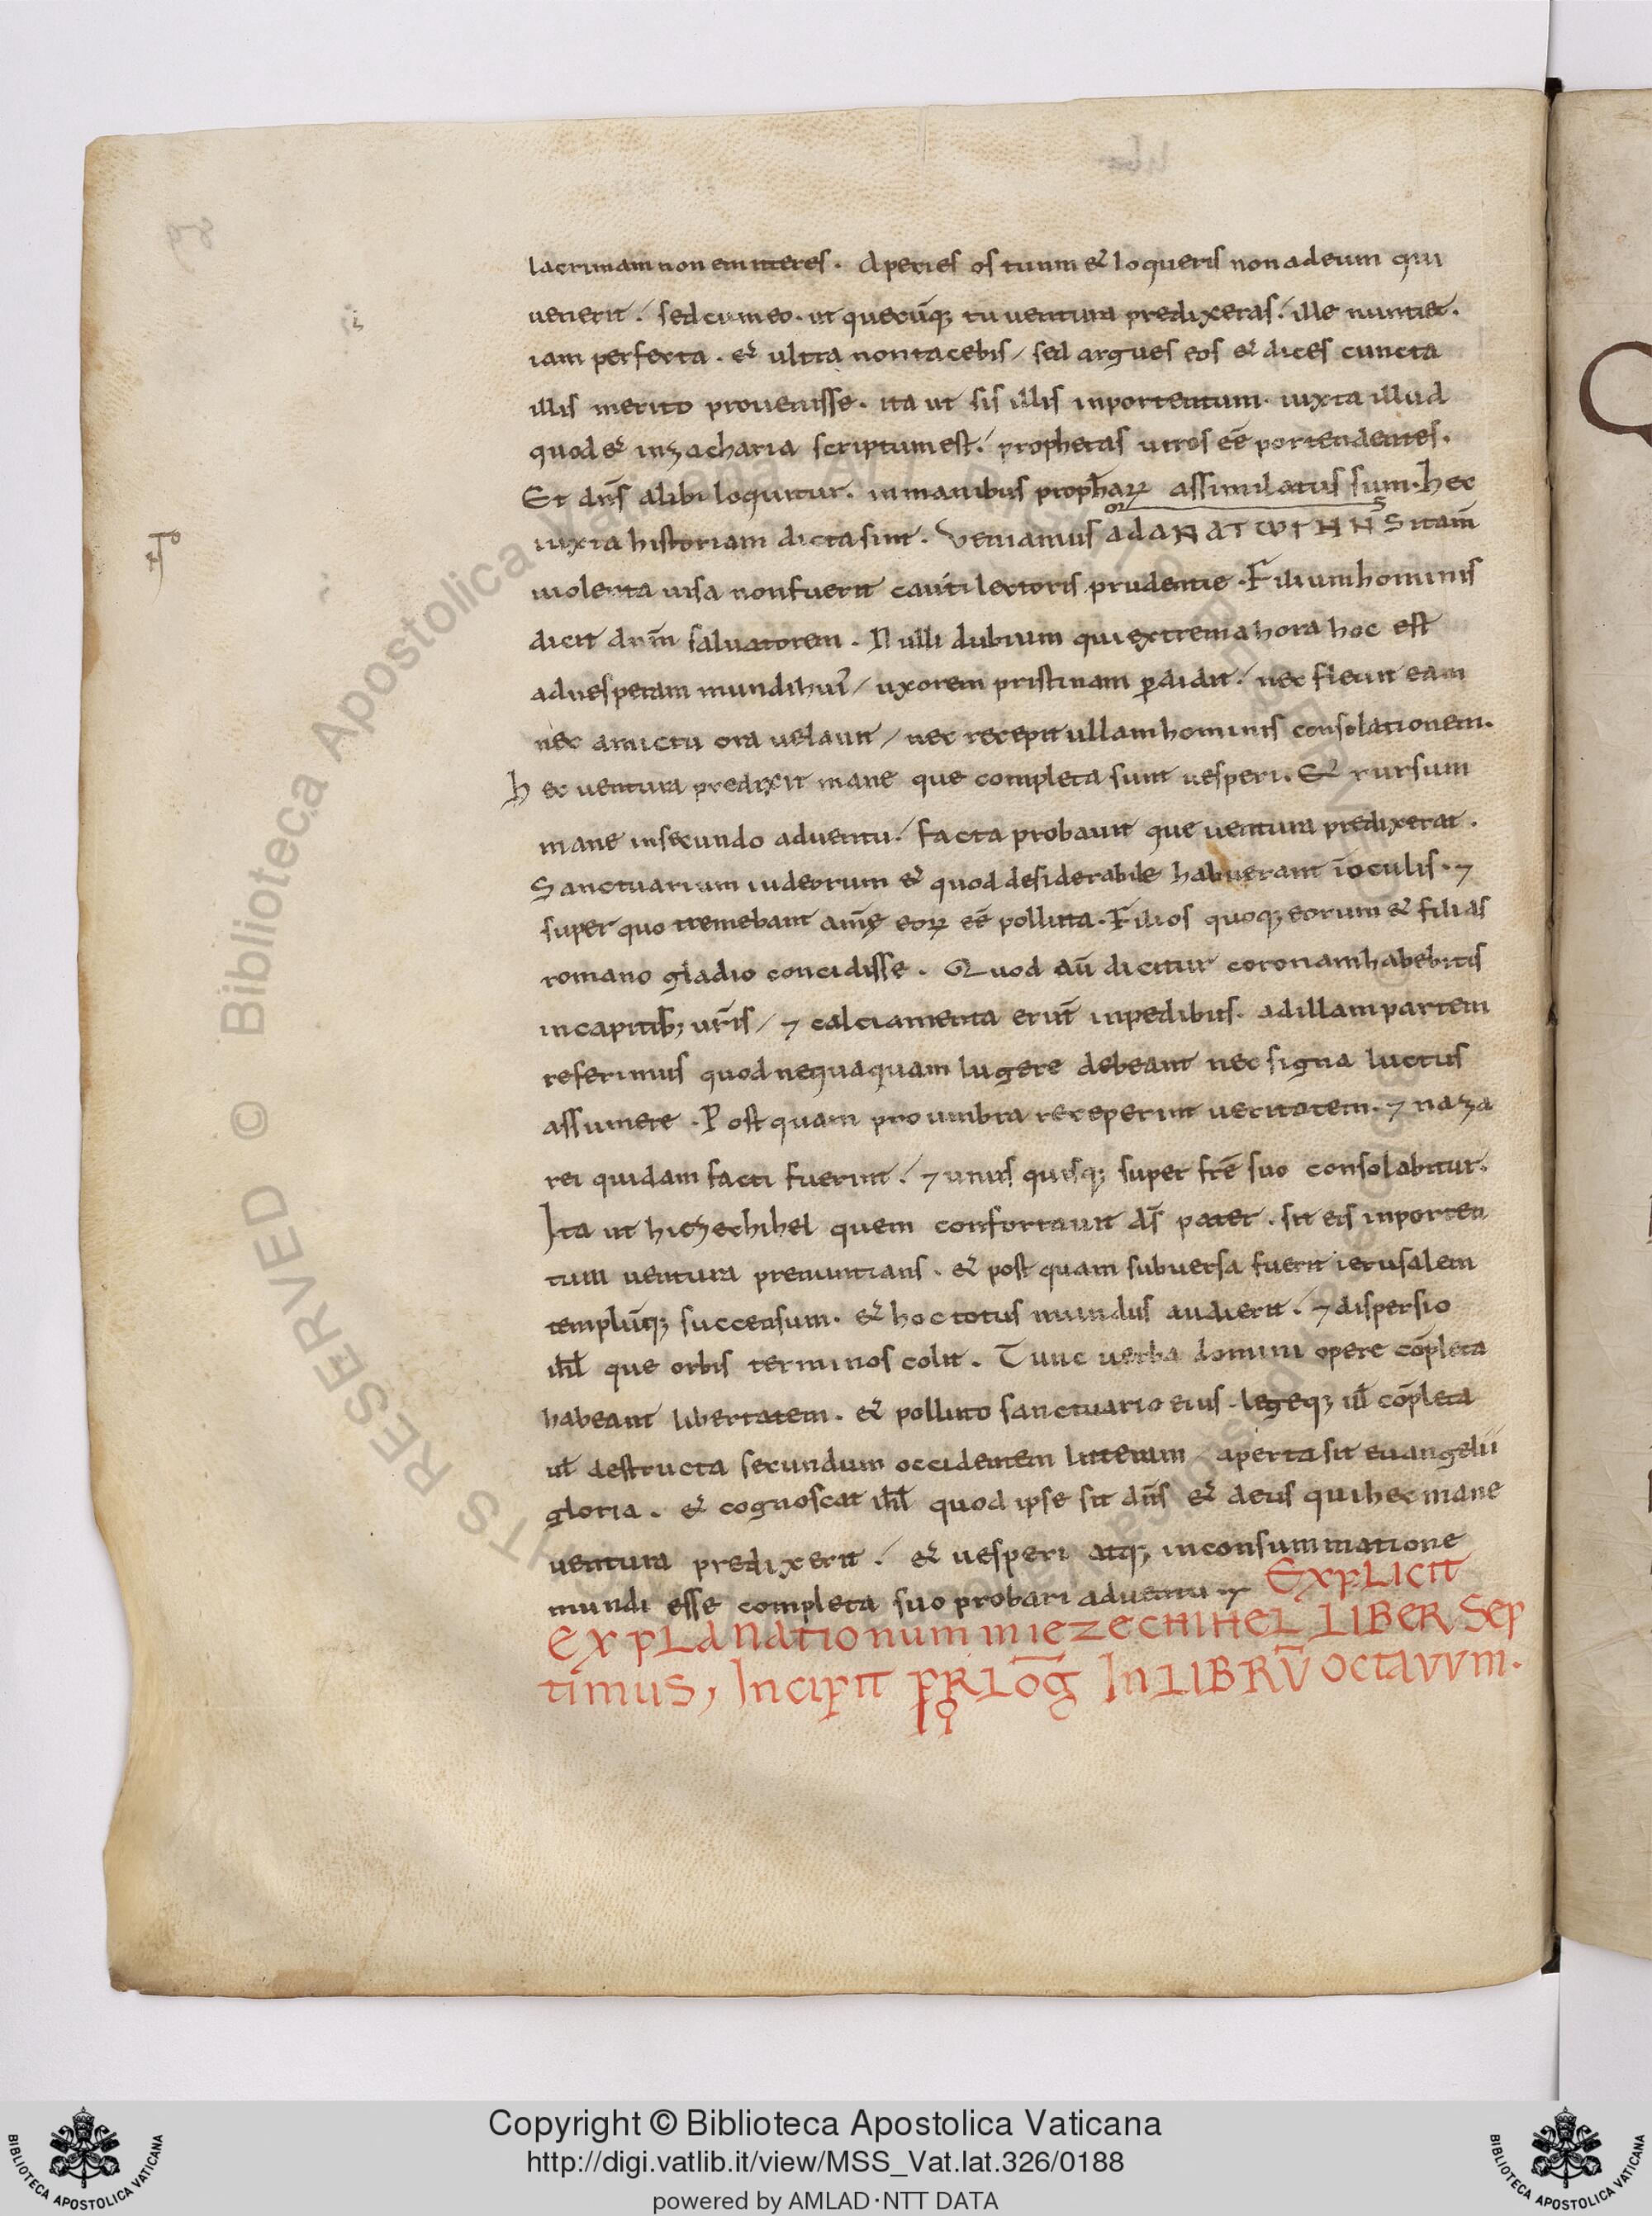 lacrimam non emitteres. Aperies os tuum & loqueris non ad eum qui
uenerit / sed cum eo. ut quecūq; tu uentura predixeras / ille nuntiet.
iam perfecta. & ultra non tacebis / sed argues eos & dices cuncta
illis merito prouenisse. ita ut sis illis in portentum. iuxta illud
quod & in zacharia scriptum est / prophetas uiros eē portendentes.
Et dn̄s alibi loquitur. in manibus prophaꝝ assimilatus sum. hec
iuxta historiam dicta sint. Veniamus ad ANATWΓHN Si tam̄
uiolenta uisa non fuerit cauti lectoris prudentie. Filium hominis
dicit dn̄m saluatorem. Nulli dubium qui extrema hora hoc est
ad uesperam mundi hui' / uxorem pristinam ꝑdidit / nec fleuit eam
nec amictu ora uelauit / nec recepit ullam hominis consolationem.
hec uentura predixit mane que completa sunt uesperi. & rursum
mane in secundo aduentu / facta probauit que uentura predixerat.
Sanctuarium iudeorum & quod desiderabile habuerant ī oculis. ⁊
super quo tremebant anīę eoꝝ eē polluta. Filios quoq; eorum & filias
romano gladio concidisse. Quod aū dicitur coronam habebitis
in capitib; ur̄is / ⁊ calciamenta erūt in pedibus. ad illam partem
referimus quod nequaquam lugere debeant nec signa luctus
assumere. Postquam pro umbra receperint ueritatem. ⁊ naza
rei quidam facti fuerint / ⁊ unus quisq; super fr̄e suo consolabitur.
Ita ut hiezechihel quem confortauit d̄s pater. sit eis in porten
tum uentura prenuntians. & post quam subuersa fuerit ierusalem
templūq; succensum. & hoc totus mundus audierit / ⁊ dispersio
ihl̄ que orbis terminos colit. Tunc uerba domini opere cōpleta
habeant libertatem. & polluto sanctuario eius. legeq; ul̄ cōpleta
ul̄ destructa secundum occidentem litteram / aperta sit euangelii
gloria. & cognoscat ihl̄ quod ipse sit dn̄s & deus qui hec mane
uentura predixerit / & uesperi atq; in consummatione
mundi esse completa suo probari aduentu ⁊ Explicit
explanationum in iezechihel liber sep
timus, Incipit prLoḡ In LIBRŪ octavvm.
Copyright © Biblioteca Apostolica Vaticana
http://digi.vatlib.it/view/MSS_Vat.lat.326/0188
powered by AMLAD·NTT DATA
BIBLIOTECA APOSTOLICA VATICANA
BIBLIOTECA APOSTOLICA VATICANA